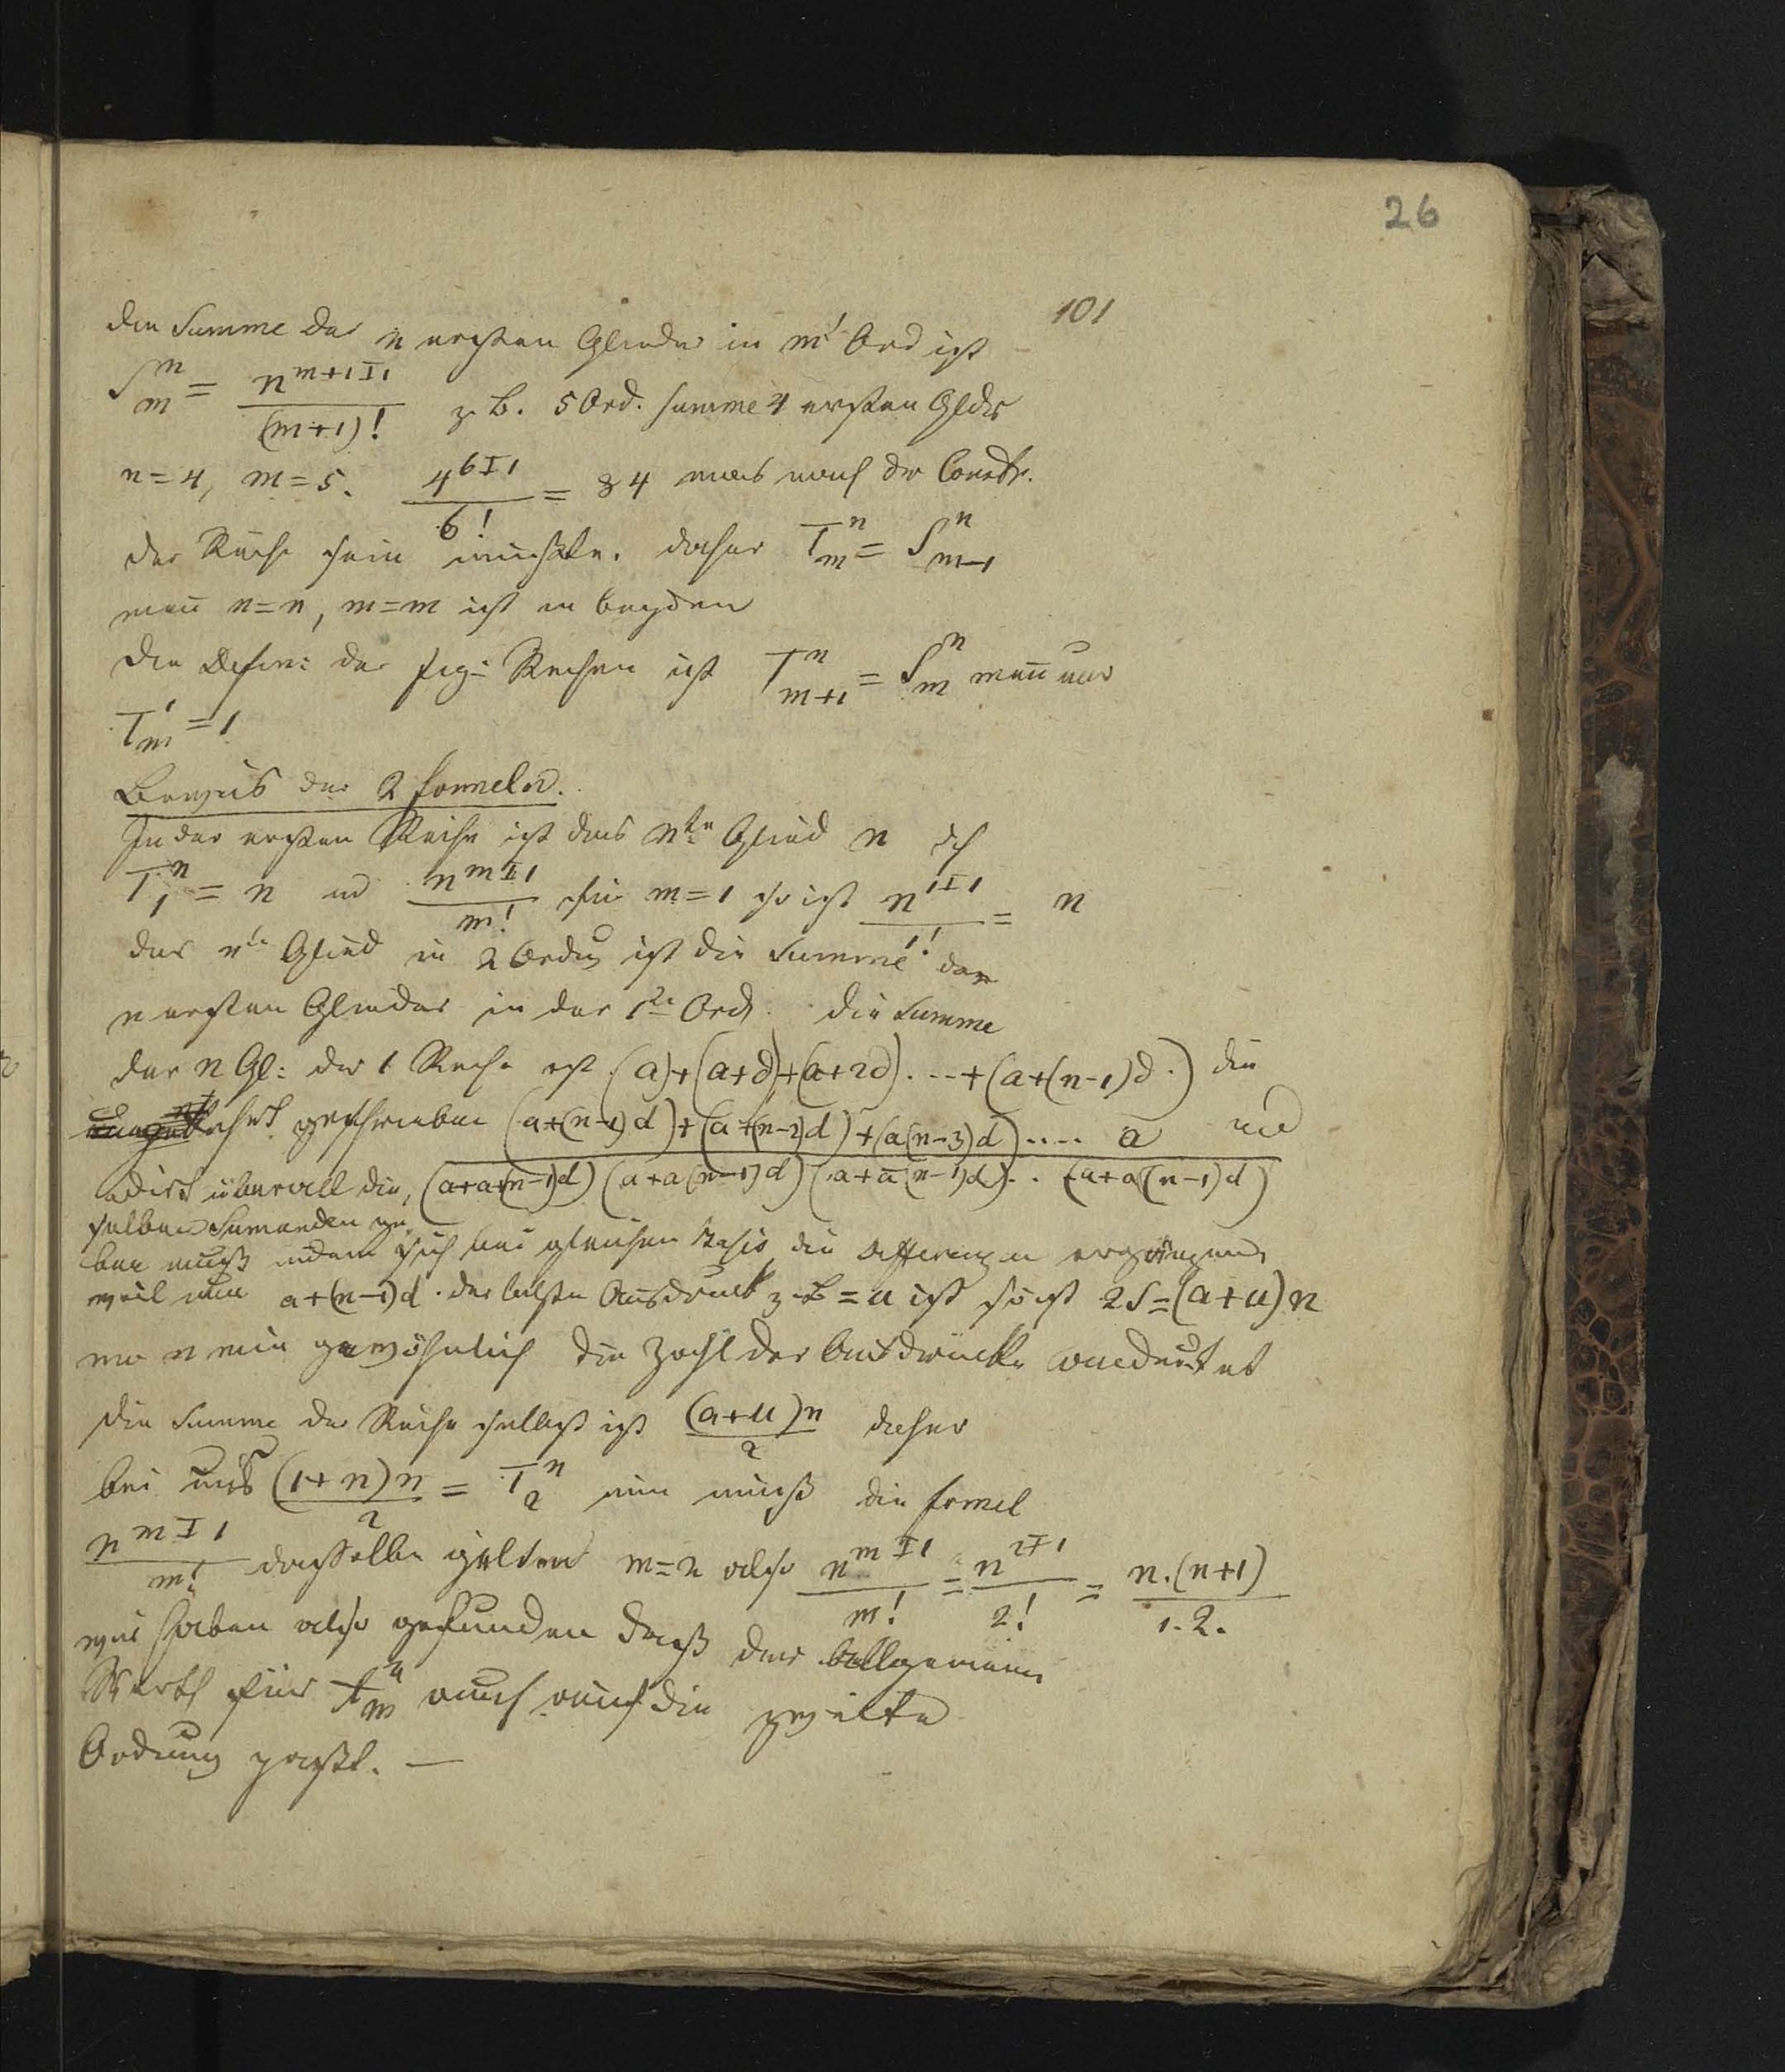 26
101
Die Summe der n ersten Glieder in m' Ord ist
S^n_m = n^{m+1 I 1} / (m+1)! z. B. 5 Ord. Summe 4 ersten Gldr
n = 4, m = 5. 4^{6 I 1} / 6! = 84 was nach der Constr.
der Reihe sein müßte. daher T^n_m = S^n_{m-1}
wenn n = n, m = m ist in beyden
Die Defin: der fig: Reihen ist T^n_{m+1} = S^n_m wenn nur
T^1_m = 1
Beweis der 2 Formeln.
In der ersten Reihe ist das nte Glied n dh
T^n_1 = n und n^{m I 1} / m! für m = 1 so ist n^{1 I 1} / 1! = n
das nte Glied in 2 Ordng ist die Summe der
n ersten Glieder in der 1ten Ord. die Summe
der n Gl: der 1 Reihe ist (a) + (a+d) + (a+2d) . -- + (a+(n-1)d.) die
umgekehrt geschrieben (a+(n-1)d) + (a+(n-2)d) + (a(n-3)d) .... a und
adirt überall die (a+a+(n-1)d) (a+a(n-1)d) (a+a(n-1)d) . . (a+a(n-1)d)
selben Sumanden ge
ben muß indem sich bei gleichen Basis die Differenzen ergänzen,
weil nun a+(n-1)d . der letzte Ausdruck z. B = u ist so ist 2S = (a+u)n
wo n wie gewöhnlich die Zahl der Ausdrücke andeutet
die Summe der Reihe selbst ist (a+u)n / 2 daher
bei uns (1+n)n / 2 = T^n_2 nun muß die Formel
n^{m I 1} / m! dasselbe gelten m = 2 also n^{m I 1} / m! = n^{2 I 1} / 2! = n.(n+1) / 1.2.
wir haben also gefunden daß der allgemeine
Werth für T^n_m auch auf die zweite
Ordnung paßt. —